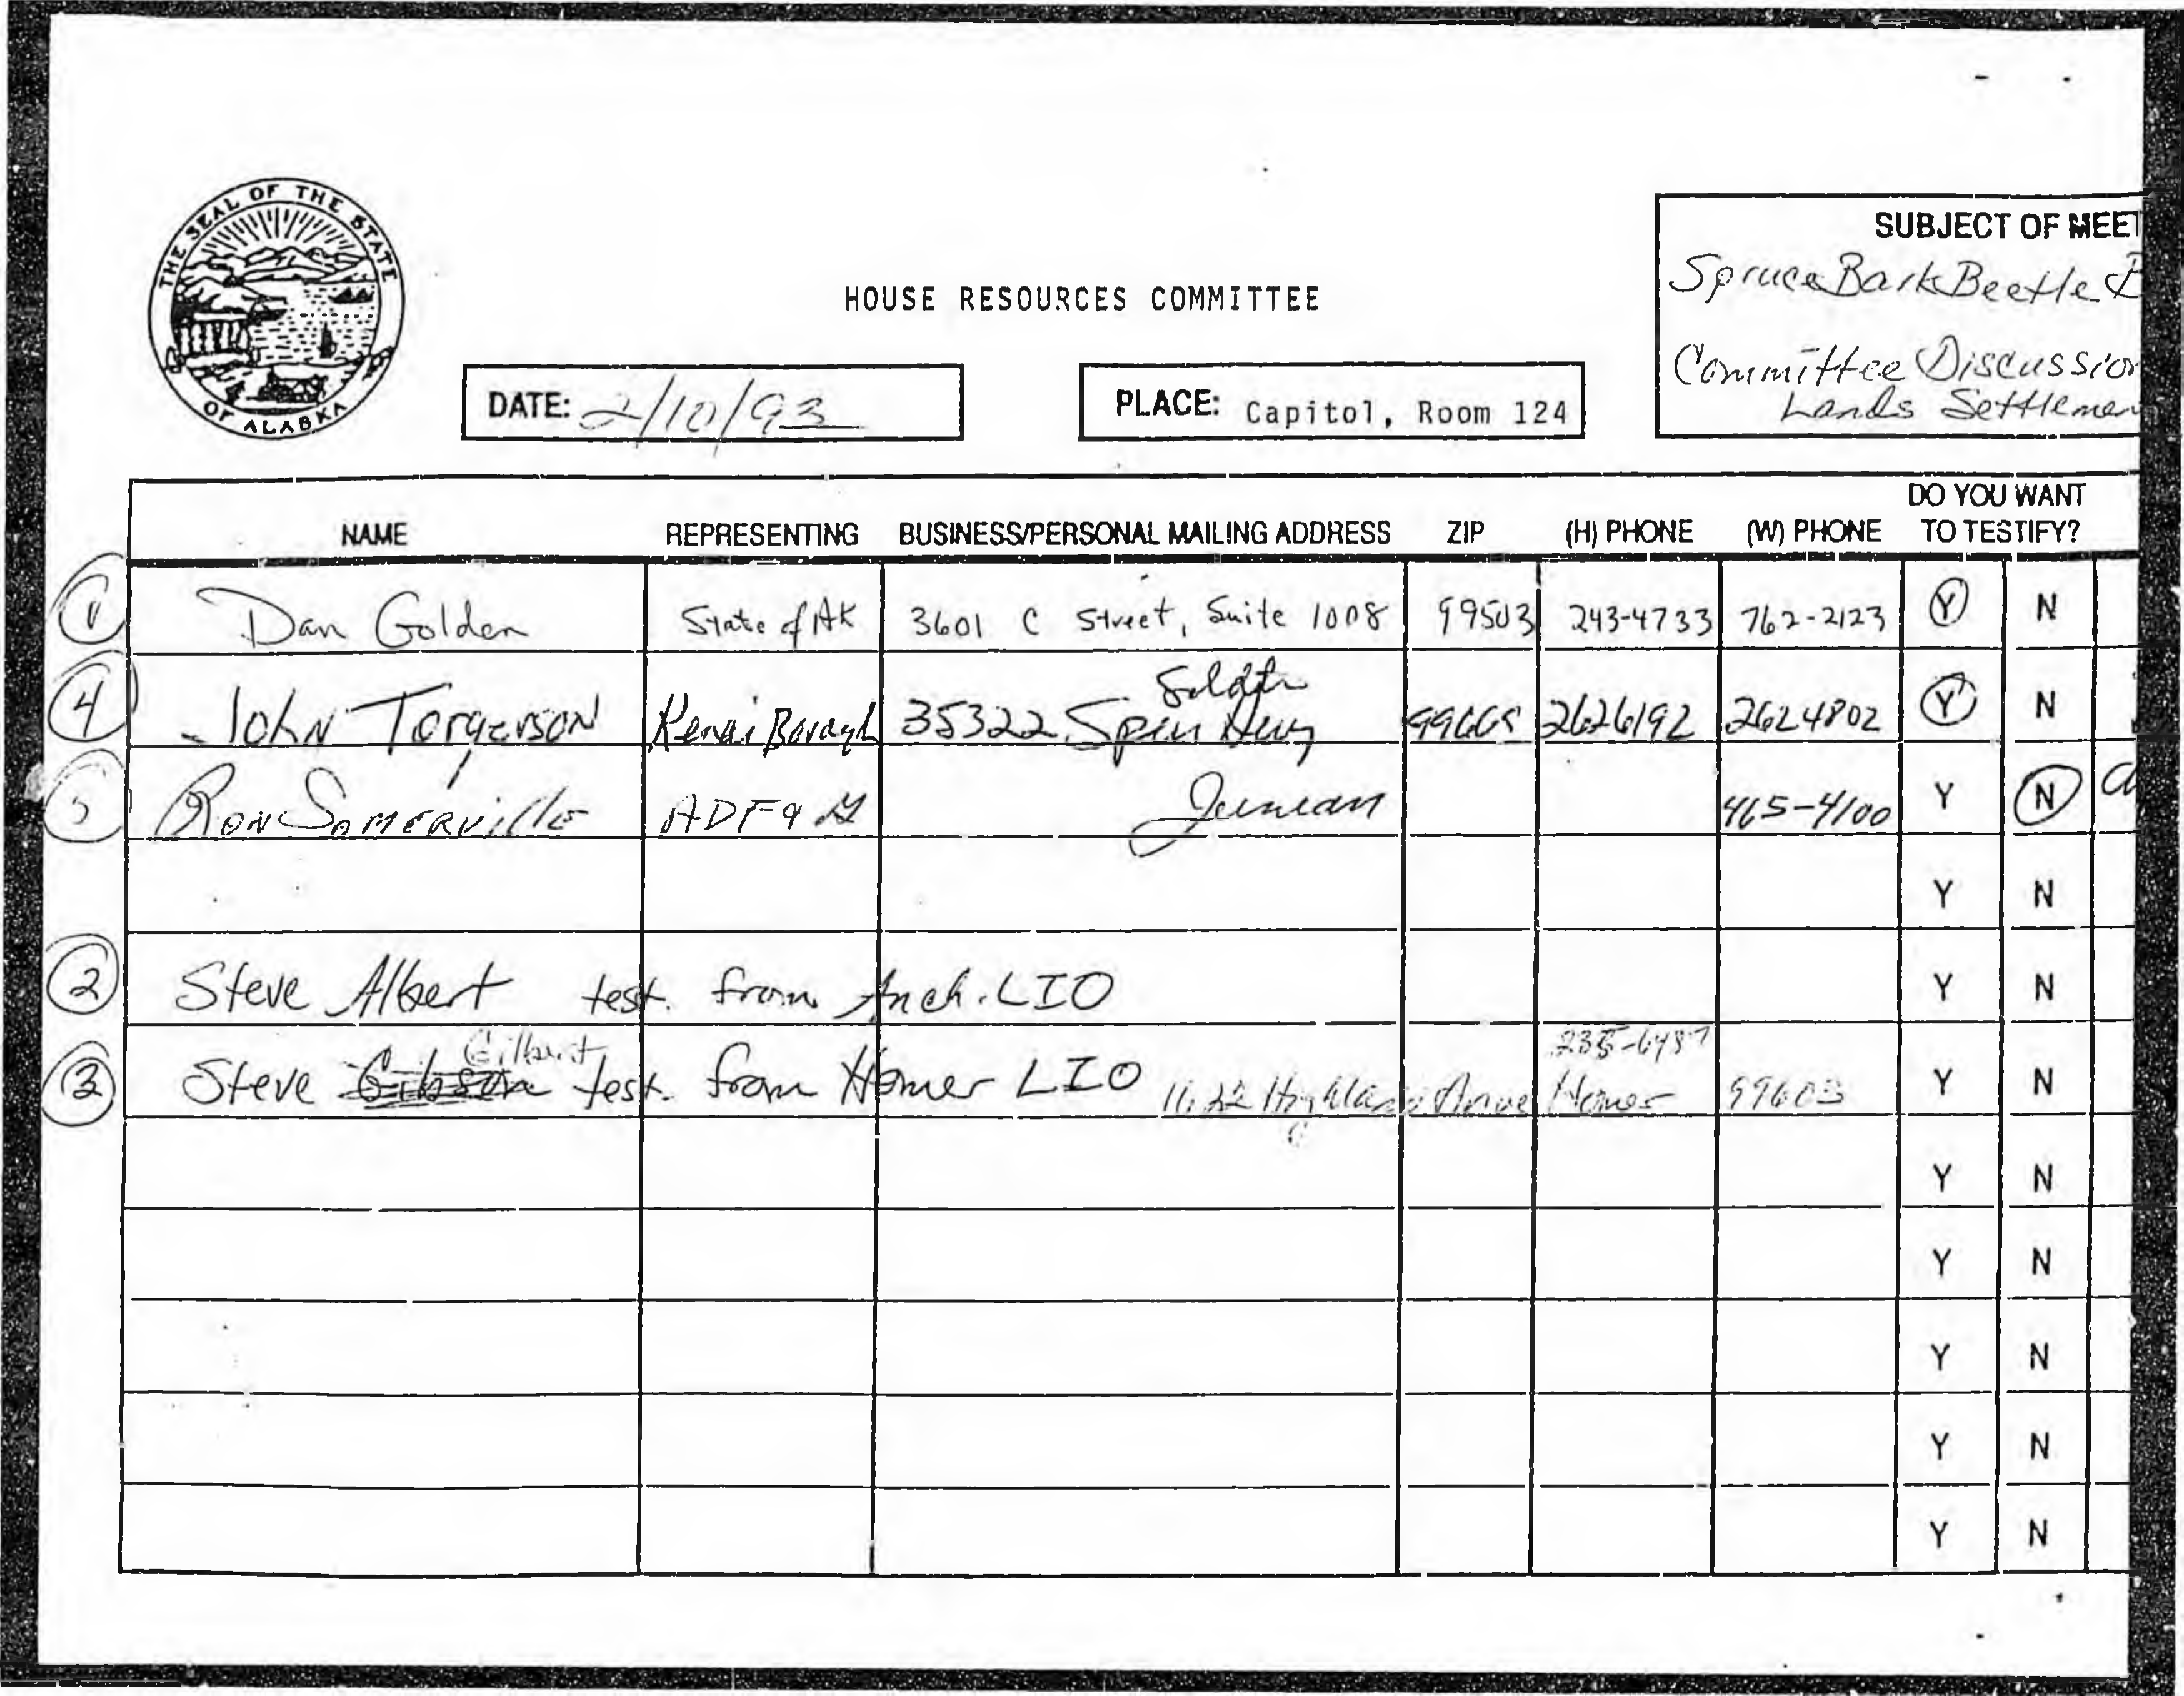 THE SEAL OF THE STATE OF ALASKA
HOUSE RESOURCES COMMITTEE
DATE: 2/10/93
PLACE: Capitol, Room 124
SUBJECT OF MEET
Spruce Bark Beetle B
Committee Discussion
Lands Settlemen
NAME REPRESENTING BUSINESS/PERSONAL MAILING ADDRESS ZIP (H) PHONE (W) PHONE DO YOU WANT TO TESTIFY?
1 Dan Golden State of AK 3601 C Street, Suite 1008 99503 243-4733 762-2123 Y N
4 John Torgerson Kenai Borough 35322 Spur Hwy 99669 2626192 2624802 Y N
5 Ron Somerville ADF&G Juneau 465-4100 Y N
Y N
2 Steve Albert test. from Anch. LIO Y N
3 Steve Gibson Gilbert test. from Homer LIO 1622 Highland Homer 99603 235-6487 Y N
Y N
Y N
Y N
Y N
Y N